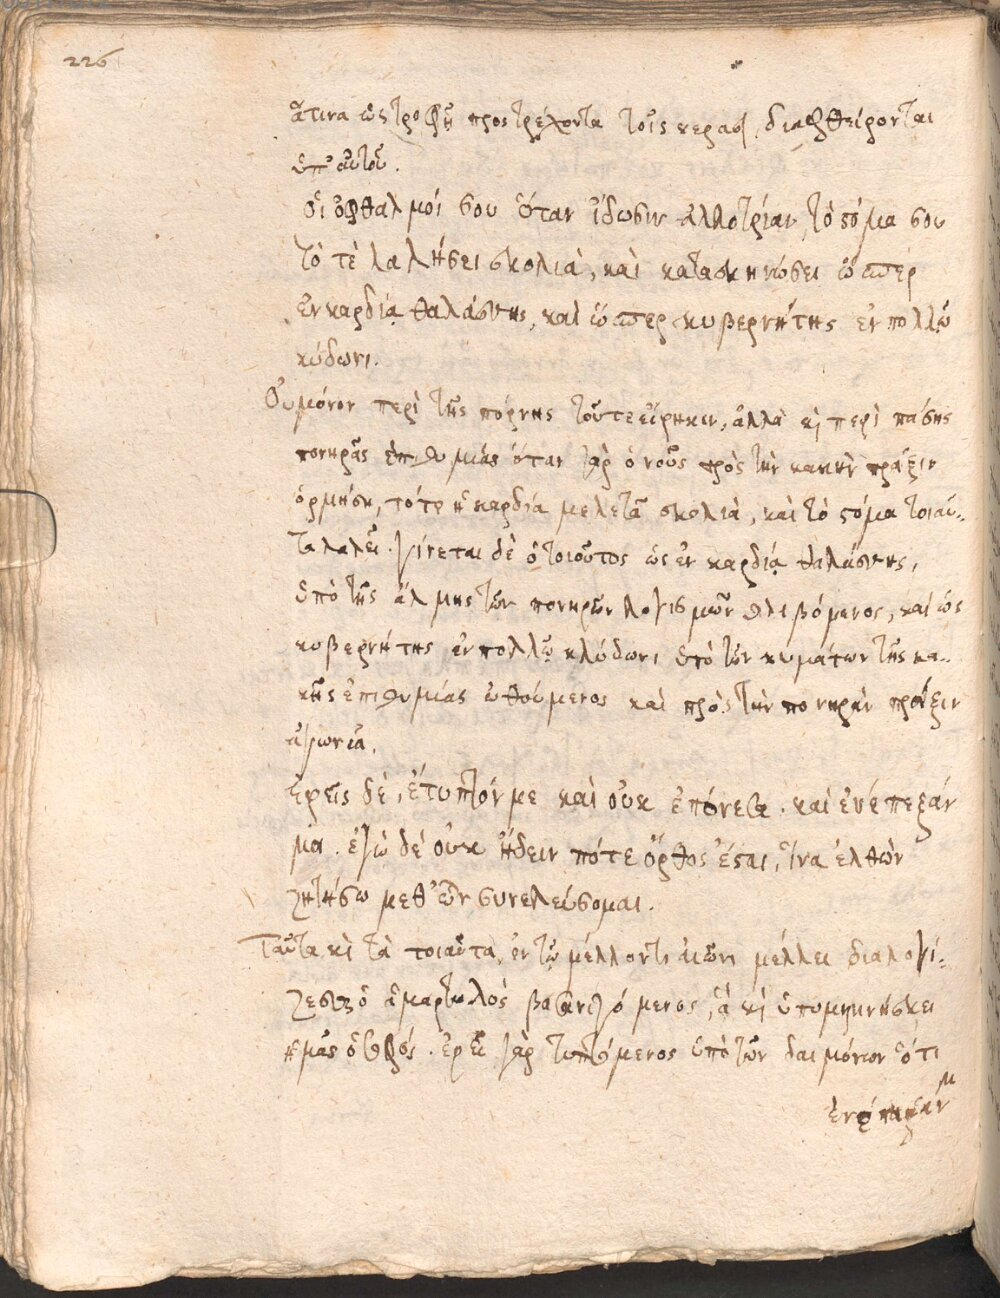 226
ἅτινα ὡς τροφῇ προστρέχοντα τοῖς κέρασι, διαφθείρονται
ὑπ' αὐτοῦ.
Οἱ ὀφθαλμοί σου ὅταν ἴδωσιν ἀλλοτρίαν, τὸ στόμα σου
τὸ τὲ λαλήσει σκολιὰ, καὶ κατασκηνώσει ὥσπερ
ἐν καρδίᾳ θαλάσσης, καὶ ὥσπερ κυβερνήτης ἐν πολλῷ
κλύδωνι.
Οὐ μόνον περὶ τῆς πόρνης τοῦτε εἴρηκεν, ἀλλὰ κὶ περὶ πάσης
πονηρᾶς ἐπιθυμίας ὅταν γὰρ ὁ νοῦς πρὸς τὴν κακὴν πρᾶξιν
ὁρμήσῃ, τότε ἡ καρδία μελετᾶ σκολιὰ, καὶ τὸ στόμα τοιαῦ-
τα λαλεῖ. γίνεται δὲ ὁ τοιοῦτος ὡς ἐν καρδίᾳ θαλάσσης,
ὑπὸ τῆς ἅλμης τῶν πονηρῶν λογισμῶν θλιβόμενος, καὶ ὡς
κυβερνήτης ἐν πολλῷ κλύδωνι ὑπὸ τῶν κυμάτων τῆς κα-
κῆς ἐπιθυμίας ὠθούμενος καὶ πρὸς τὴν πονηρὰν πρᾶξιν
ἀγωνιᾶ.
Ἐρεῖς δὲ, ἔτυπτόν με καὶ οὐκ ἐπόνεσα. καὶ ἐνέπεξάν
μοι. ἐγὼ δὲ οὐκ ᾔδειν πότε ὄρθος ἔσται, ἵνα ἐλθὼν
ζητήσω μεθ' ὧν συνελεύσομαι.
Ταῦτα κὶ τὰ τοιαῦτα, ἐν τῷ μέλλοντι αἰῶνι μέλλει διαλογί-
ζεσθαι ὁ ἁμαρτωλὸς βασανιζόμενος, ἃ κὶ ὑπομιμνήσκει
ἡμᾶς ὁ σοφός. ἐρεῖ γὰρ τυπτόμενος ὑπὸ τῶν δαιμόνων ὅτι
ἐνέπαιξάν μ